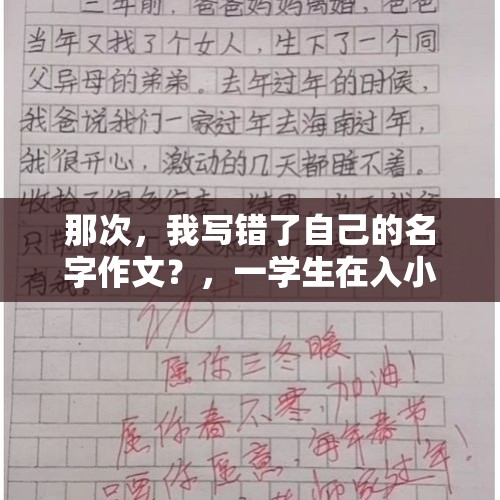 三年前,爸爸妈妈离婚,爸爸
当年又找了个女人,生下了一个同
父异母的弟弟。去年过年的时候,
我爸说我们一家过年去海南过年,
我很开心,激动的几天都睡不着。
收拾了很多行李,结果,当天我爸
那次，我写错了自己的名
字作文？，一学生在入小
有我。
愿你三冬暖
愿你春不寒,加油!
你愿意,每年春节
师家过年!